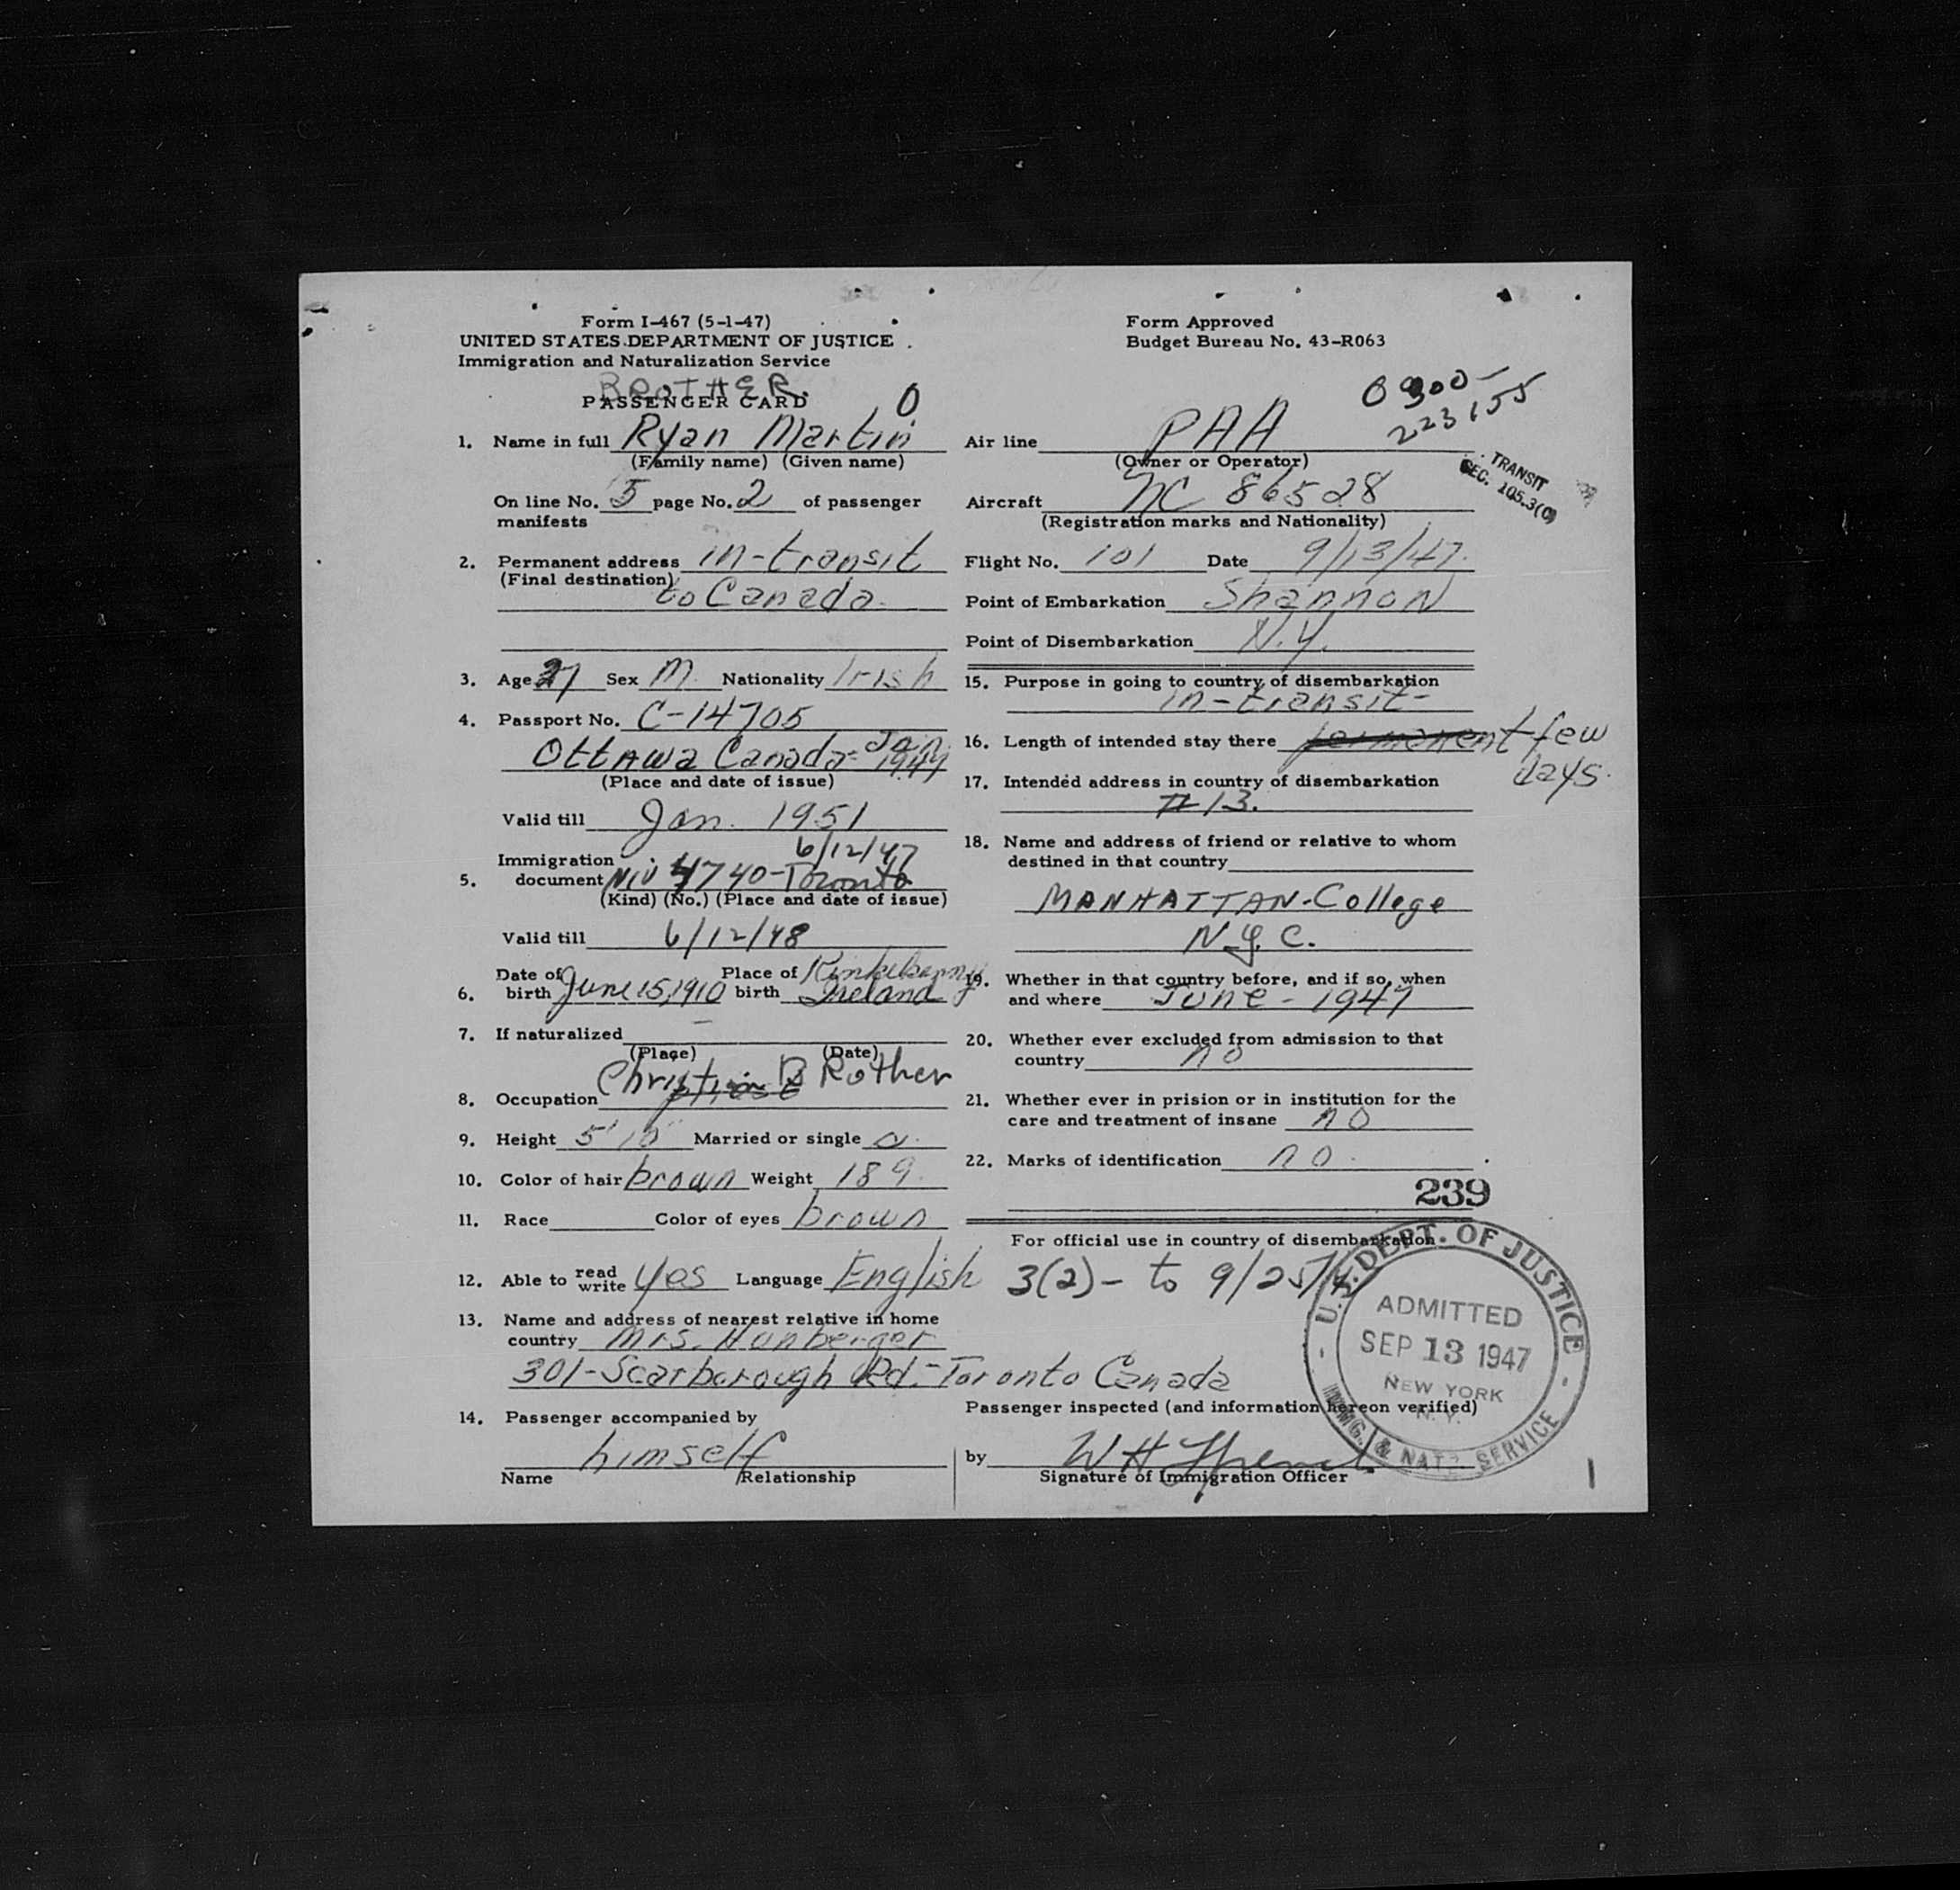 Form I-467 (5-1-47)
UNITED STATES DEPARTMENT OF JUSTICE
Immigration and Naturalization Service
BROTHER.
PASSENGER CARD
0
1. Name in full Ryan Martin
(Family name) (Given name)
On line No. 5 page No. 2 of passenger
manifests
2. Permanent address in-transit
(Final destination) to Canada.
3. Age 37 Sex M. Nationality Irish
4. Passport No. C-14705
Ottawa Canada - Jan.
(Place and date of issue)
Valid till Jan. 1951
6/12/47
Immigration
5. document NIV 4740-Toronto
(Kind) (No.) (Place and date of issue)
Valid till 6/12/48
6. Date of birth June 15, 1910 Place of birth Ireland
7. If naturalized
(Place) (Date)
Christian BRother
8. Occupation priest
9. Height 5'10" Married or single
10. Color of hair brown Weight 189
11. Race Color of eyes brown
12. Able to read write yes Language English
13. Name and address of nearest relative in home
country Mrs. Hanberger
301-Scarborough Rd.-Toronto Canada
14. Passenger accompanied by
himself
Name Relationship
Form Approved
Budget Bureau No. 43-R063
0 900
223155
TRANSIT
SEC. 105.3(C)
Air line PAA
(Owner or Operator)
Aircraft NC 86528
(Registration marks and Nationality)
Flight No. 101 Date 9/13/47.
Point of Embarkation Shannon
Point of Disembarkation N.Y.
15. Purpose in going to country of disembarkation
in-transit-
16. Length of intended stay there permanent few
days.
17. Intended address in country of disembarkation
#13.
18. Name and address of friend or relative to whom
destined in that country
MANHATTAN-College
N.Y.C.
19. Whether in that country before, and if so, when
and where June - 1947
20. Whether ever excluded from admission to that
country no
21. Whether ever in prision or in institution for the
care and treatment of insane no
22. Marks of identification no.
239
For official use in country of disembarkation
3(2)- to 9/25/47
U.S. DEPT. OF JUSTICE
ADMITTED
SEP 13 1947
NEW YORK
N.Y.
IMMIG. & NATZ. SERVICE
Passenger inspected (and information hereon verified)
by W H
Signature of Immigration Officer